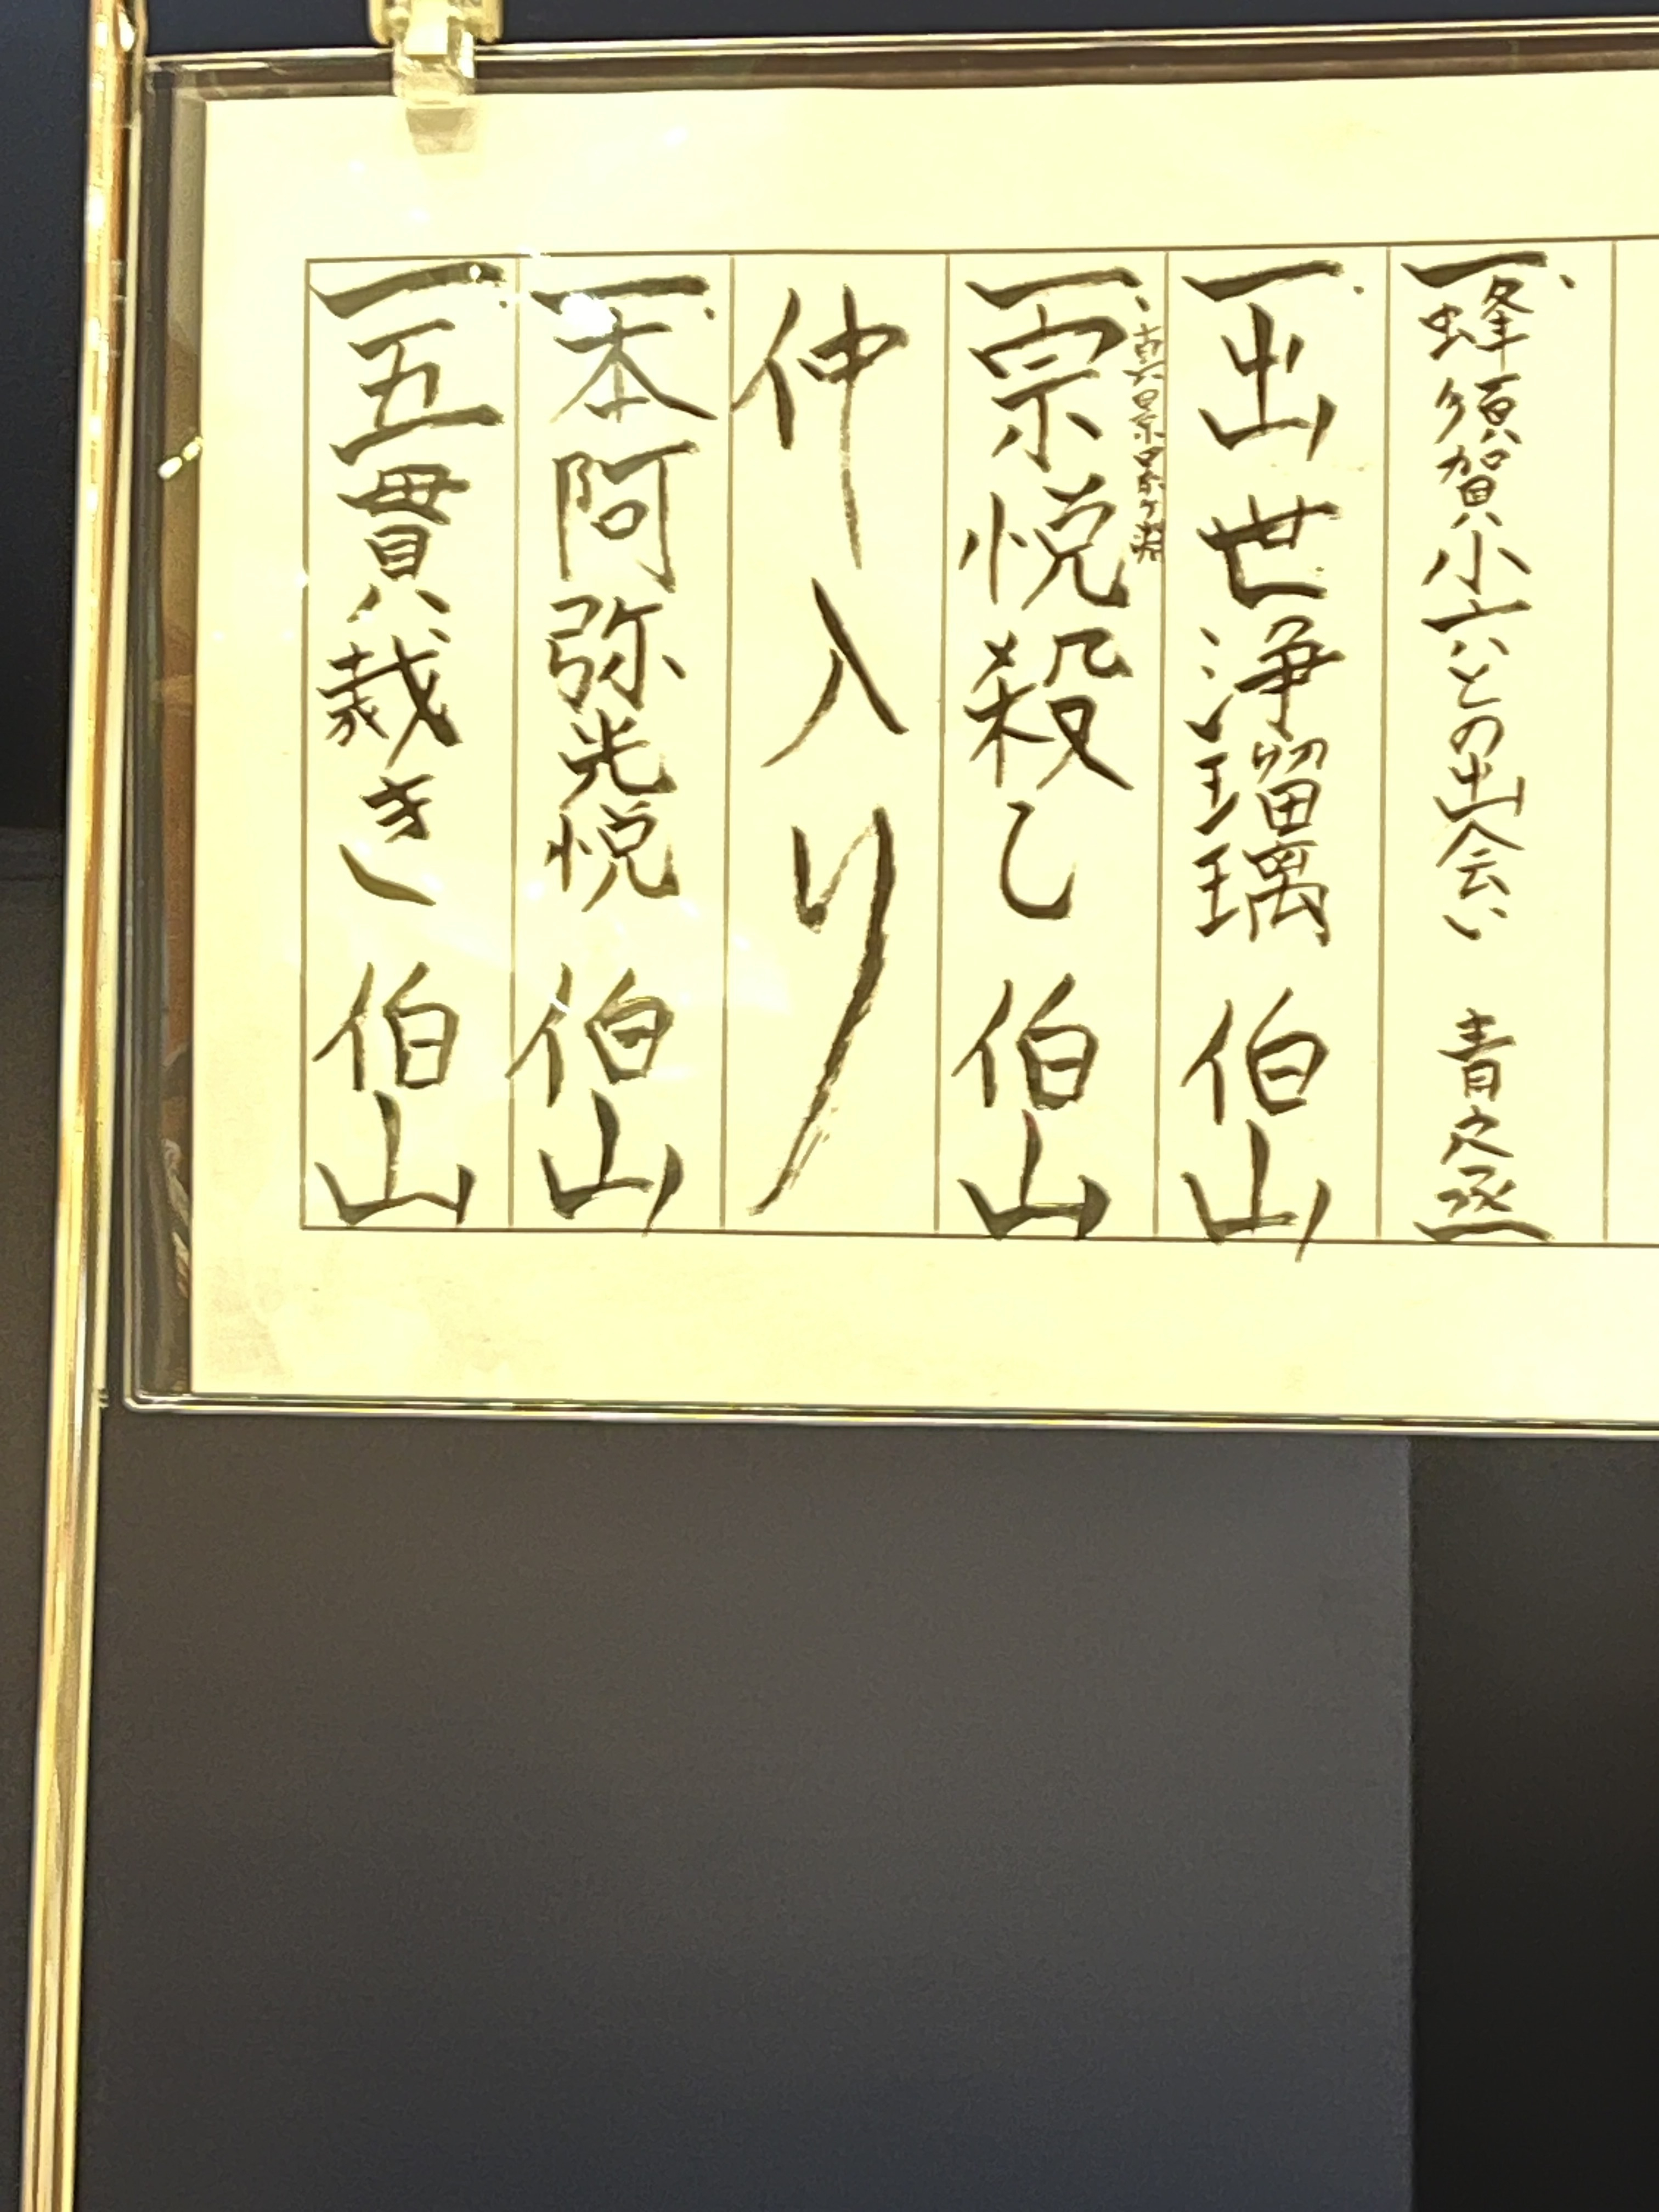 一、蜂須賀小六との出会い 青之丞
一、出世浄瑠璃 伯山
一、真景累ヶ淵
宗悦殺し 伯山
仲入り
一、本阿弥光悦 伯山
一、五貫裁き 伯山